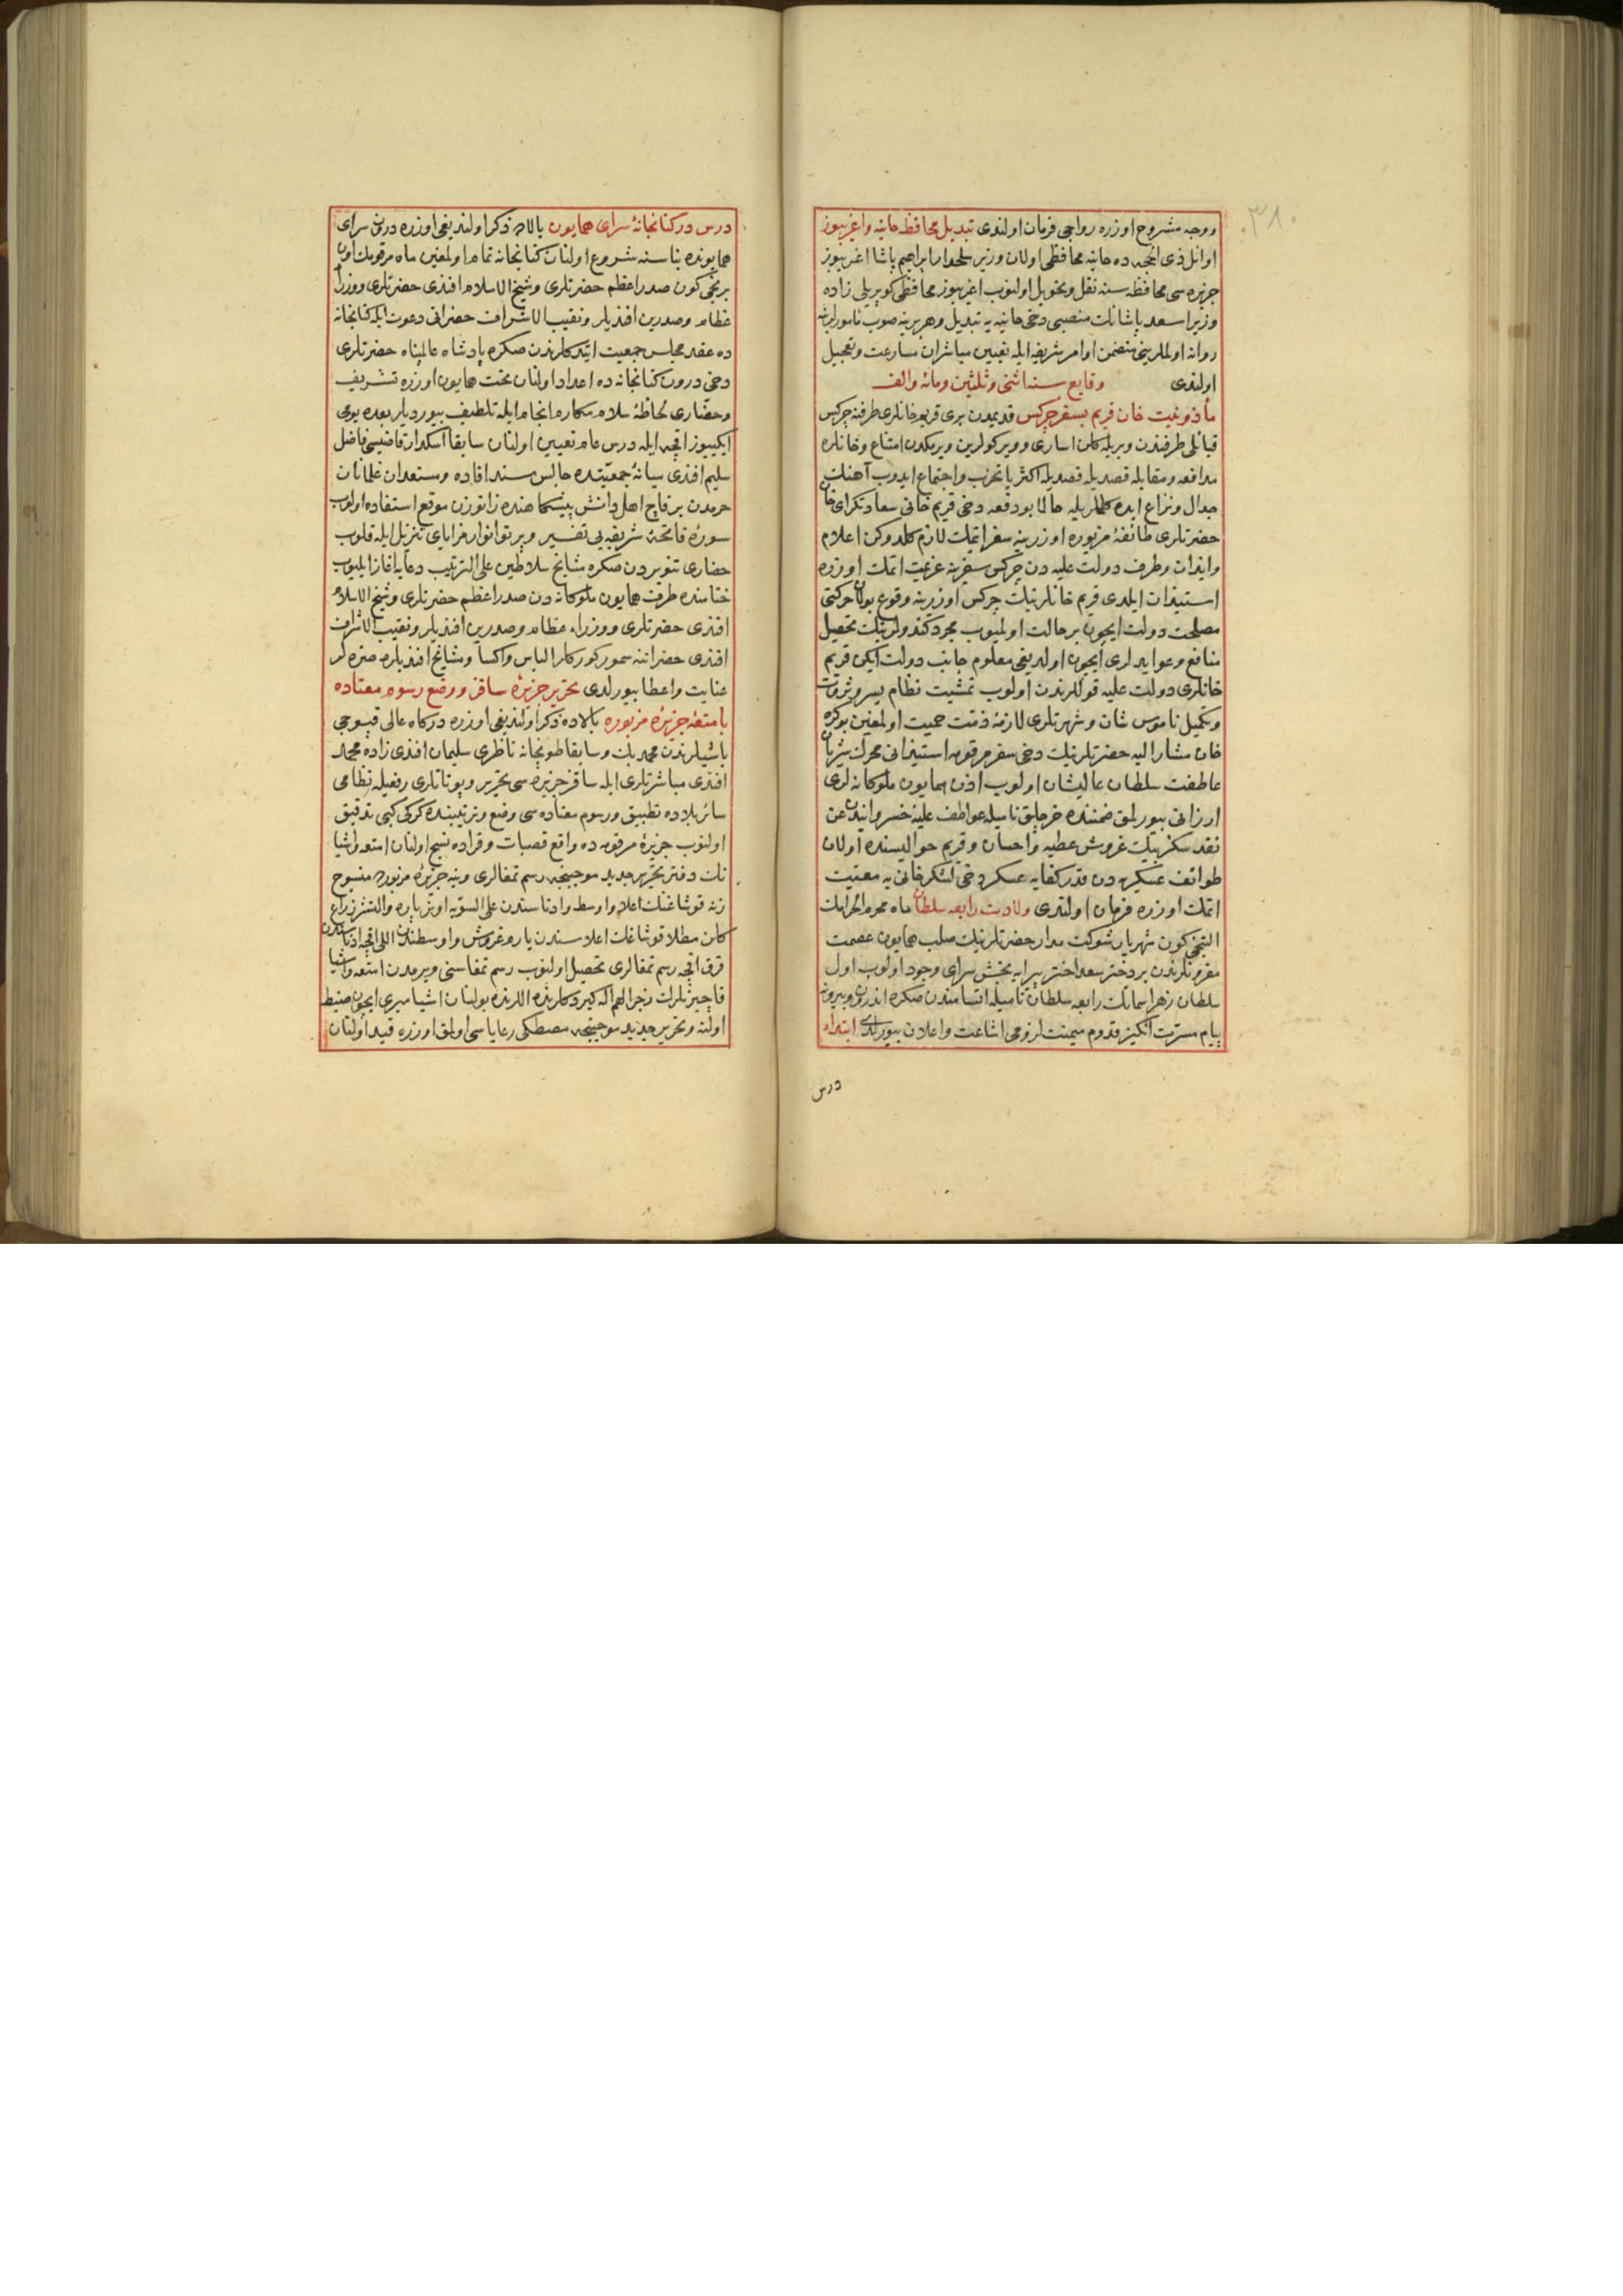 ٣٨٠
ووجه مشروح اوزره رواجی فرمان اولندی تبدیل محافظ حانیه واغریبوز
اوائل ذی الحجه ده حانیه محافظی اولان وزیر سلحدار ابراهیم پاشا اغریبوز
جزیره سی محافظه سنه نقل وتحویل اولنوب اغریبوز محافظی کوپریلی زاده
وزیر اسعد پاشانك منصبی دخی حانیه یه تبدیل وهر برینه صوب مأمورلرینه
روانه اولملرینی متضمن اوامر شریفه ایله تعیین مباشران مسارعت وتعجیل
اولندی وقایع سنه اثنی وثلثین ومائه والف
مأذونیت خان قریم بسفر چرکس قدیمدن بری قریم خانلری طرفنه چرکس
قبائلی طرفندن ویریله کلن اساری وویرکولرین ویرمکدن امتناع وخانلره
مدافعه ومقابله قصدیله اکثریا تحزب واجتماع ایدوب آهنك
جدال ونزاع ایده کلملریله حالا بو دفعه دخی قریم خانی سعادتکرای خان
حضرتلری طائفهٔ مزبوره اوزرینه سفر اتمك لازم کلدوکن اعلام
وایذان وطرف دولت علیه دن چرکس سفرینه عزیمت اتمك اوزره
استیذان ایلدی قریم خانلرینك چرکس اوزرینه وقوع بولان حرکتی
مصلحت دولت ایچون بر حالت اولمیوب مجرد کندولرینك تحصیل
منافع وعوایدلری ایچون اولدیغی معلوم جانب دولت ایکن قریم
خانلری دولت علیه قوللرندن اولوب تمشیت نظام یسر وثروت
وتکمیل ناموس شان وشهرتلری لازمهٔ ذمت حمیت اولمغین بو کره
خان مشار الیه حضرتلرینك دخی سفر مرقومه استیذانی محرك شریان
عاطفت سلطان عالیشان اولوب اذن همایون ملوکانه لری
ارزانی بیورلمق ضمننده خرجلق نامیله عواطف علیهٔ خسروانیدن عن
نقد سکز بیك غروش عطیه واحسان وقریم حوالیسنده اولان
طوائف عسکریه دن قدر کفایه عسکر دخی لشکر خانی یه معیت
اتمك اوزره فرمان اولندی ولادت رابعه سلطان ماه محرم الحرامك
التنجی کون شهریار شوکت مدار حضرتلرینك صلب همایون عصمت
مقرونلرندن بر دختر سعد اختر پیرایه بخش سرای وجود اولوب اول
سلطان زهرا سمانك رابعه سلطان نامیله اتسامندن صکره اندرون وبیرونه
پیام مسرت انکیز قدوم میمنت لزومی اشاعت واعلان بیورلدی ابتداء
درس
درس در کتابخانهٔ سرای همایون بالاده ذکر اولندیغی اوزره درون سرای
همایونده بناسنه شروع اولنان کتابخانه تمام اولمغین ماه مرقومك اون
برنجی کون صدر اعظم حضرتلری وشیخ الاسلام افندی حضرتلری ووزرا
عظام وصدرین افندیلر ونقیب الاشراف حضراتی دعوت ایله کتابخانه
ده عقد مجلس جمعیت ایتدکلرندن صکره پادشاه عالمپناه حضرتلری
دخی درون کتابخانه ده اعداد اولنان تخت همایون اوزره تشریف
وحضاری لحاظهٔ سلام مکارم انجام ایله تلطیف بیوردیلر بعده یومی
ایکییوز اقچه ایله درس عام تعیین اولنان سابقا اسکدار قاضیسی فاضل
سلیم افندی میانهٔ جمعیتده جالس مسند افاده ومستعدان غلمانان
حرمدن بر قاچ اهل دانش پیشکاهنده زانوزن موقع استفاده اولوب
سورهٔ فاتحهٔ شریفه یی تفسیر وپرتو انوار مزایای تنزیل ایله قلوب
حضاری تنویردن صکره مشایخ سلاطین علی الترتیب دعایه آغاز ایلیوب
ختامنده طرف همایون ملوکانه دن صدر اعظم حضرتلری وشیخ الاسلام
افندی حضرتلری ووزراء عظام وصدرین افندیلر ونقیب الاشراف
افندی حضراتنه سمور کورکلر الباس واکسا ومشایخ افندیلره صره لر
عنایت واعطا بیورلدی تحریر جزیرهٔ ساقز ووضع رسوم معتاده
بامتعهٔ جزیرهٔ مزبوره بالاده ذکر اولندیغی اوزره درکاه عالی قپوجی
باشیلرندن محمد بك وسابقا طوبخانه ناظری سلیمان افندی زاده محمد
افندی مباشرتلری ایله ساقز جزیره سی تحریر وپوتاتلری رفعیله نظامی
سائر بلاده تطبیق ورسوم معتاده سی وضع وترتیبنده کرکی کبی تدقیق
اولنوب جزیرهٔ مرقومه ده واقع قصبات وقراده نسج اولنان امتعه واشیا
نك دفتر تحریر جدید موجبنجه رسم تمغالری وینه جزیرهٔ مزبوره منسوج
زنه قوشاغنك اعلا واوسط وادناسندن علی السویه اوتز پاره والتشر ذراع
کلن مطلا قوشاغك اعلاسندن یارم غروش واوسطندن اللی اقچه ادناسندن
قرق اقچه رسم تمغالری تحصیل اولنوب رسم تمغاسنی ویرمدن امتعه واشیا
قاچیرنلرك زجرا لهم اله کیردکلرنده اللرنده بولنان اشیا میری ایچون ضبط
اولنه وتحریر جدید موجبنجه مصطکی رعایاسی اولمق اوزره قید اولنان